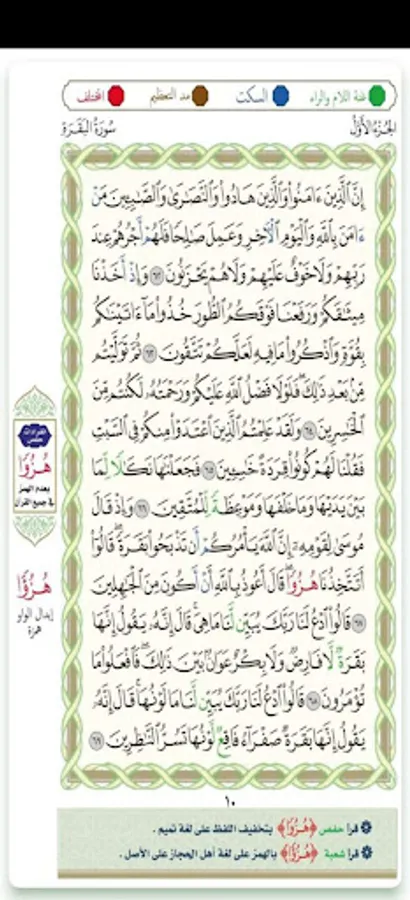 غنة اللام والراء السكت مد التعظيم المختلف
الجزء الأول سورة البقرة
إِنَّ الَّذِينَ ءَامَنُوا وَالَّذِينَ هَادُوا وَالنَّصَٰرَىٰ وَالصَّٰبِـِٔينَ مَنْ
ءَامَنَ بِاللَّهِ وَالْيَوْمِ الْأَخِرِ وَعَمِلَ صَٰلِحًا فَلَهُمْ أَجْرُهُمْ عِندَ
رَبِّهِمْ وَلَا خَوْفٌ عَلَيْهِمْ وَلَا هُمْ يَحْزَنُونَ ٦٢ وَإِذْ أَخَذْنَا
مِيثَٰقَكُمْ وَرَفَعْنَا فَوْقَكُمُ الطُّورَ خُذُوا مَا ءَاتَيْنَٰكُم
بِقُوَّةٍ وَاذْكُرُوا مَا فِيهِ لَعَلَّكُمْ تَتَّقُونَ ٦٣ ثُمَّ تَوَلَّيْتُم
مِّنۢ بَعْدِ ذَٰلِكَ ۖ فَلَوْلَا فَضْلُ اللَّهِ عَلَيْكُمْ وَرَحْمَتُهُۥ لَكُنتُم مِّنَ
الْخَٰسِرِينَ ٦٤ وَلَقَدْ عَلِمْتُمُ الَّذِينَ اعْتَدَوْا مِنكُمْ فِي السَّبْتِ
فَقُلْنَا لَهُمْ كُونُوا قِرَدَةً خَٰسِـِٔينَ ٦٥ فَجَعَلْنَٰهَا نَكَٰلًا لِّمَا
بَيْنَ يَدَيْهَا وَمَا خَلْفَهَا وَمَوْعِظَةً لِّلْمُتَّقِينَ ٦٦ وَإِذْ قَالَ
مُوسَىٰ لِقَوْمِهِۦٓ إِنَّ اللَّهَ يَأْمُرُكُمْ أَن تَذْبَحُوا بَقَرَةً ۖ قَالُوٓا
أَتَتَّخِذُنَا هُزُوًا ۖ قَالَ أَعُوذُ بِاللَّهِ أَنْ أَكُونَ مِنَ الْجَٰهِلِينَ
٦٧ قَالُوا ادْعُ لَنَا رَبَّكَ يُبَيِّن لَّنَا مَا هِيَ ۚ قَالَ إِنَّهُۥ يَقُولُ إِنَّهَا
بَقَرَةٌ لَّا فَارِضٌ وَلَا بِكْرٌ عَوَانٌۢ بَيْنَ ذَٰلِكَ ۖ فَافْعَلُوا مَا
تُؤْمَرُونَ ٦٨ قَالُوا ادْعُ لَنَا رَبَّكَ يُبَيِّن لَّنَا مَا لَوْنُهَا ۚ قَالَ إِنَّهُۥ
يَقُولُ إِنَّهَا بَقَرَةٌ صَفْرَآءُ فَاقِعٌ لَّوْنُهَا تَسُرُّ النَّٰظِرِينَ ٦٩
هُزُوًا
بعدم الهمز
في جميع القرآن
هُزُؤًا
إبدال الواو
همزة
١٠
قرأ حفص ﴿هُزُوًا﴾ بتخفيف اللفظ على لغة تميم .
قرأ شعبة ﴿هُزُؤًا﴾ بالهمز على لغة أهل الحجاز على الأصل .